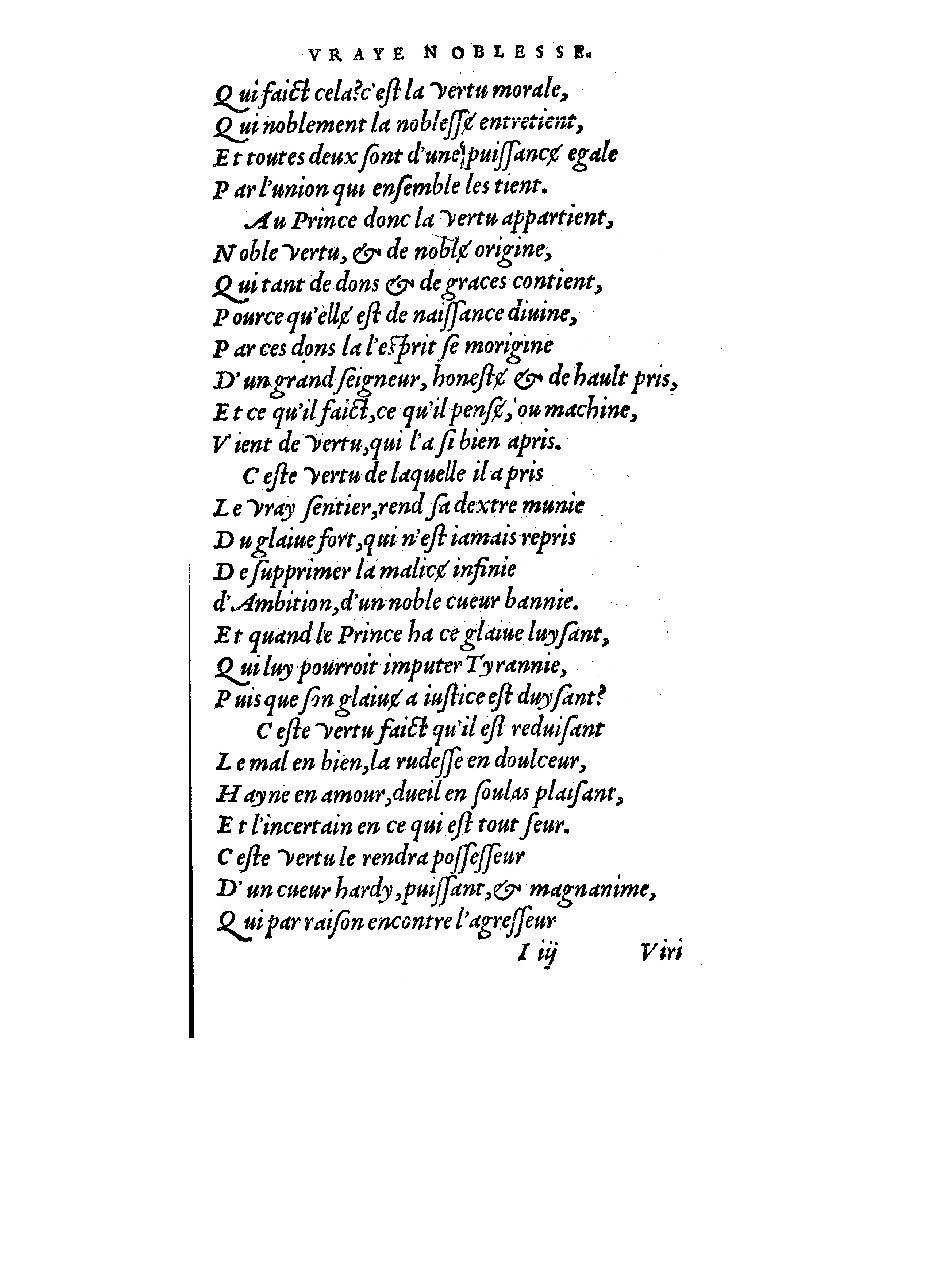 VRAYE NOBLESSE.
Qui faict cela? c'eſt la vertu morale,
Qui noblement la nobleſſɇ entretient,
Et toutes deux ſont d'une puiſſancɇ egale
Par l'union qui enſemble les tient.
Au Prince donc la vertu appartient,
Noble vertu, & de noblɇ origine,
Qui tant de dons & de graces contient,
Pource qu'ellɇ eſt de naiſſance diuine,
Par ces dons la l'eſprit ſe morigine
D'un grand ſeigneur, honeſtɇ & de hault pris,
Et ce qu'il faict, ce qu'il penſɇ, ou machine,
Vient de vertu, qui l'a ſi bien apris.
Ceſte vertu de laquelle il a pris
Le vray ſentier, rend ſa dextre munie
Du glaiue fort, qui n'eſt iamais repris
De ſupprimer la malicɇ infinie
d'Ambition, d'un noble cueur bannie.
Et quand le Prince ha ce glaiue luyſant,
Qui luy pourroit imputer Tyrannie,
Puis que ſon glaiuɇ a iuſtice eſt duyſant?
Ceſte vertu faict qu'il eſt reduiſant
Le mal en bien, la rudeſſe en doulceur,
Hayne en amour, dueil en ſoulas plaiſant,
Et l'incertain en ce qui eſt tout ſeur.
Ceſte vertu le rendra poſſeſſeur
D'un cueur hardy, puiſſant, & magnanime,
Qui par raiſon encontre l'agreſſeur
I iij Viri